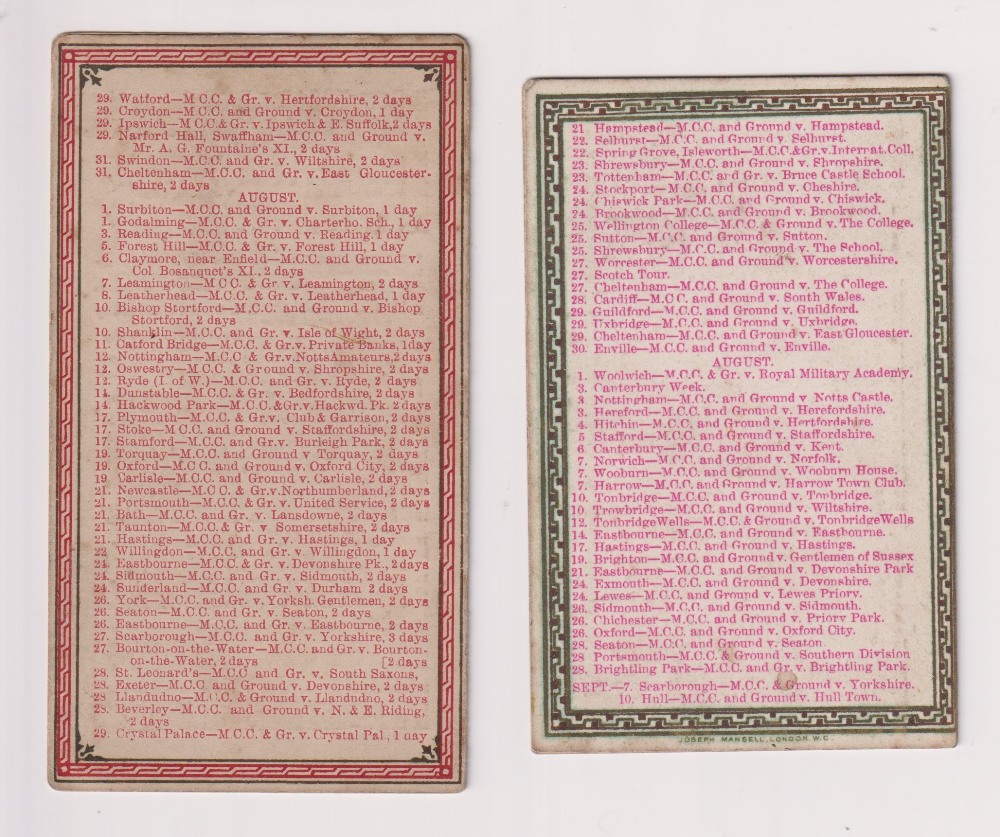 29. Watford—M C.C. & Gr. v. Hertfordshire, 2 days
29. Croydon—M C.C. and Ground v. Croydon, 1 day
29. Ipswich—M C.C.& Gr. v. Ipswich & E. Suffolk, 2 days
29. Narford Hall, Swaffham—M.C.C. and Ground v.
Mr. A. G. Fountaine's XI., 2 days
31. Swindon—M.C.C. and Gr. v. Wiltshire, 2 days
31. Cheltenham—M.C.C. and Gr. v. East Gloucester-
shire, 2 days
AUGUST.
1. Surbiton—M.C.C. and Ground v. Surbiton, 1 day
1. Godalming—M.C.C. & Gr. v. Charterho. Sch., 1 day
3. Reading—M.C.C. and Ground v. Reading, 1 day
5. Forest Hill—M.C.C. & Gr. v. Forest Hill, 1 day
6. Claymore, near Enfield—M.C.C. and Ground v.
Col. Bosanquet's XI., 2 days
7. Leamington—M C C. & Gr v. Leamington, 2 days
8. Leatherhead—M.C.C. & Gr. v. Leatherhead, 1 day
10. Bishop Stortford—M.C.C. and Ground v. Bishop
Stortford, 2 days
10. Shanklin—M.C.C. and Gr. v. Isle of Wight, 2 days
11. Catford Bridge—M.C.C. & Gr. v. Private Banks, 1 day
12. Nottingham—M.C.C & Gr. v. Notts Amateurs, 2 days
12. Oswestry—M.C.C. & Ground v. Shropshire, 2 days
12. Ryde (I. of W.)—M.C.C. and Gr. v. Ryde, 2 days
14. Dunstable—M.C.C. & Gr. v. Bedfordshire, 2 days
14. Hackwood Park—M.C.C. & Gr. v. Hackwd. Pk. 2 days
17. Plymouth—M.C.C. & Gr. v. Club & Garrison, 2 days
17. Stoke—M C.C. and Ground v. Staffordshire, 2 days
17. Stamford—M.C.C. and Gr. v. Burleigh Park, 2 days
19. Torquay—M.C.C. and Ground v Torquay, 2 days
19. Oxford—M.C C. and Ground v. Oxford City, 2 days
19. Carlisle—M.C.C. and Ground v. Carlisle, 2 days
21. Newcastle—M.C C & Gr. v. Northumberland, 2 days
21. Portsmouth—M.C.C. & Gr. v. United Service, 2 days
21. Bath—M.C.C. and Gr. v. Lansdowne, 2 days
21. Taunton—M.C.C. & Gr. v Somersetshire, 2 days
21. Hastings—M.C.C. and Gr. v. Hastings, 1 day
22. Willingdon—M.C.C. and Gr. v. Willingdon, 1 day
24. Eastbourne—M.C.C. & Gr. v. Devonshire Pk., 2 days
24. Sidmouth—M.C.C. and Gr. v. Sidmouth, 2 days
24. Sunderland—M.C.C. and Gr. v. Durham 2 days
26. York—M.C.C. and Gr. v. Yorksh. Gentlemen, 2 days
26. Seaton—M.C.C. and Gr. v. Seaton, 2 days
26. Eastbourne—M.C.C. and Gr. v. Eastbourne, 2 days
27. Scarborough—M.C.C. and Gr. v. Yorkshire, 3 days
27. Bourton-on-the-Water—M.C.C. and Gr. v. Bourton-
on-the-Water, 2 days [2 days
28. St. Leonard's—M.C.C and Gr. v. South Saxons,
28. Exeter—M.C.C and Ground v. Devonshire, 2 days
28. Llandudno—M.C.C. & Ground v. Llandudno, 2 days
28. Beverley—M.C.C. and Ground v. N. & E. Riding,
2 days
29. Crystal Palace—M C.C. & Gr. v. Crystal Pal., 1 day
21. Hampstead—M.C.C. and Ground v. Hampstead.
22. Selhurst—M.C.C. and Ground v. Selhurst.
22. Spring Grove, Isleworth—M.C.C. & Gr. v. Internat. Coll.
23. Shrewsbury—M.C.C. and Ground v. Shropshire.
23. Tottenham—M.C.C. and Gr. v. Bruce Castle School.
24. Stockport—M.C.C. and Ground v. Cheshire.
24. Chiswick Park—M.C.C. and Ground v. Chiswick.
24. Brookwood—M.C.C. and Ground v. Brookwood.
25. Wellington College—M.C.C. & Ground v. The College.
25. Sutton—M.C.C. and Ground v. Sutton.
25. Shrewsbury—M.C.C. and Ground v. The School.
27. Worcester—M.C.C. and Ground v. Worcestershire.
27. Scotch Tour.
27. Cheltenham—M.C.C. and Ground v. The College.
28. Cardiff—M.C C. and Ground v. South Wales.
29. Guildford—M.C.C. and Ground v. Guildford.
29. Uxbridge—M.C.C. and Ground v. Uxbridge.
29. Cheltenham—M.C.C. and Ground v. East Gloucester.
30. Enville—M.C.C. and Ground v. Enville.
AUGUST.
1. Woolwich—M.C.C. & Gr. v. Royal Military Academy.
3. Canterbury Week.
3 Nottingham—M.C.C. and Ground v Notts Castle.
3. Hereford—M.C.C. and Ground v. Herefordshire.
4. Hitchin—M.C.C. and Ground v. Hertfordshire.
5 Stafford—M.C.C. and Ground v. Staffordshire.
6 Canterbury—M.C.C. and Ground v. Kent.
7. Norwich—M.C.C. and Ground v. Norfolk.
7. Wooburn—M.C.C. and Ground v. Wooburn House.
7. Harrow—M.C.C. and Ground v. Harrow Town Club.
10. Tonbridge—M.C.C. and Ground v. Tonbridge.
10. Trowbridge—M.C.C. and Ground v. Wiltshire.
12. Tonbridge Wells—M.C.C. & Ground v. Tonbridge Wells
14. Eastbourne—M.C.C. and Ground v. Eastbourne.
17. Hastings—M.C.C. and Ground v. Hastings.
19. Brighton—M.C.C. and Ground v. Gentlemen of Sussex
21. Eastbourne—M.C.C. and Ground v. Devonshire Park
24. Exmouth—M.C.C. and Ground v. Devonshire.
24. Lewes—M.C.C. and Ground v. Lewes Priory.
26. Sidmouth—M.C.C. and Ground v. Sidmouth.
26. Chichester—M.C.C. and Ground v. Priory Park.
26. Oxford—M.C.C. and Ground v. Oxford City.
28. Seaton—M.C.C. and Ground v. Seaton.
28 Portsmouth—M.C.C. & Ground v. Southern Division
28. Brightling Park—M.C.C. and Gr. v. Brightling Park.
SEPT.—7. Scarborough—M.C.C. & Ground v. Yorkshire.
10. Hull—M.C.C. and Ground v. Hull Town.
JOSEPH MANSELL, LONDON. W.C.